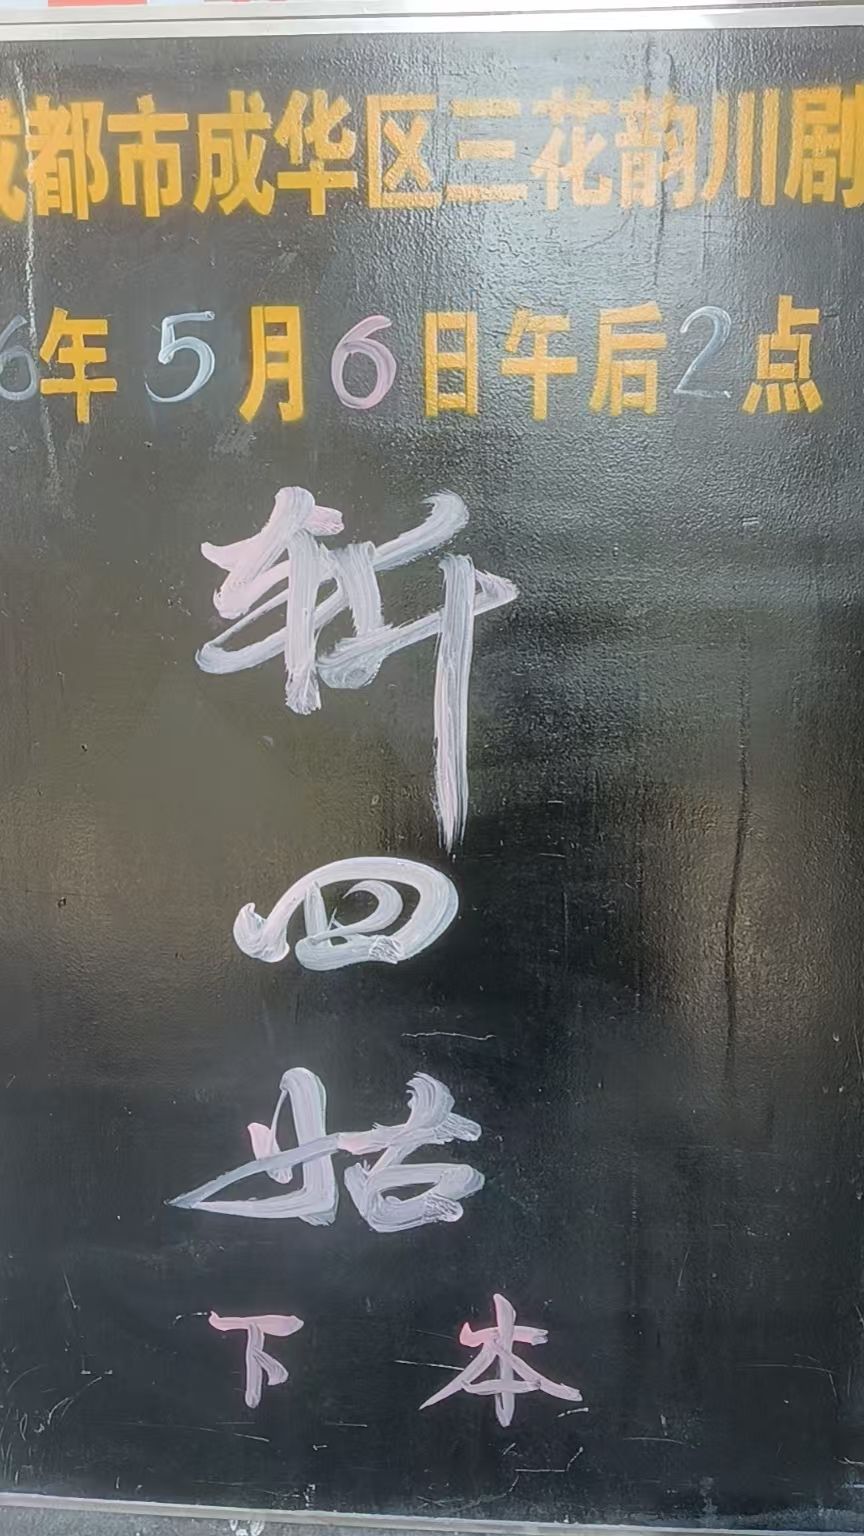 成都市成华区三花韵川剧
6年5月6日午后2点
斩
四
姑
下本